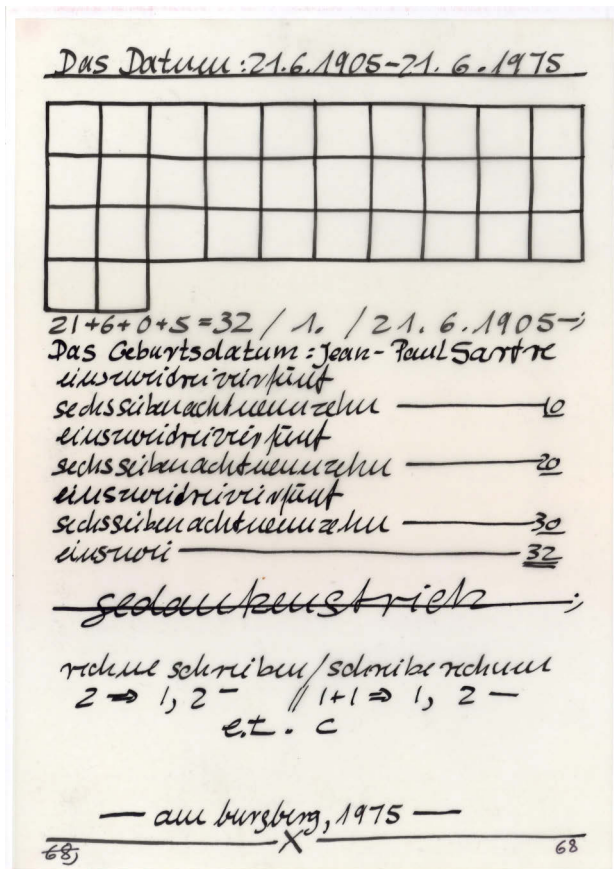 Das Datum: 21.6.1905-21.6.1975
21+6+0+5=32 / 1. / 21.6.1905-;
Das Geburtsdatum: Jean-Paul Sartre
einszweidreivierfünf
sechssiebenachtneunzehn — 10
einszweidreivierfünf
sechssiebenachtneunzehn — 20
einszweidreivierfünf
sechssiebenachtneunzehn — 30
einszwei — 32
gedankenstrich ;
rechne schreiben/schreibe rechnen
2 ⇒ 1, 2 — // 1+1 ⇒ 1, 2 —
e.t. c
— am burgberg, 1975 —
68) X 68